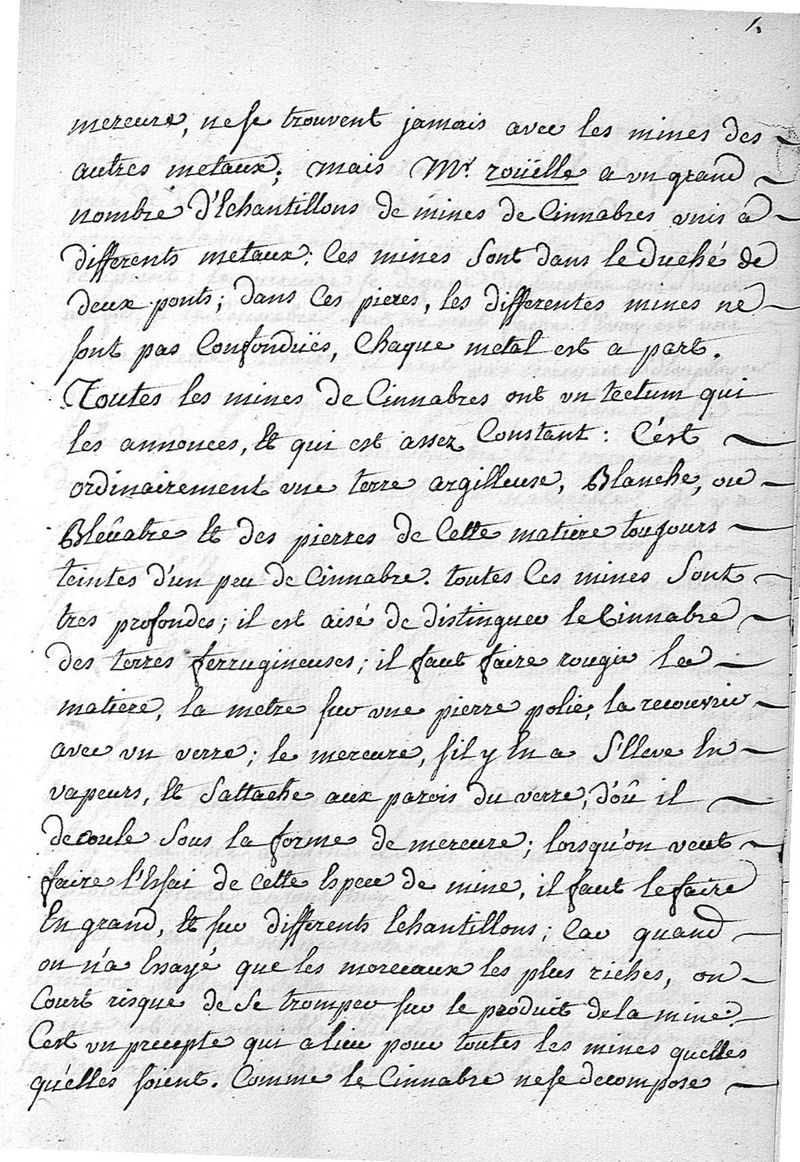 mercure, ne se trouvent jamais avec les mines des
autres metaux; mais Mr. roüelle a un grand
nombre d'Echantillons de mines de Cinnabres unis a
differents metaux: Ces mines sont dans le duché de
deux ponts; dans Ces pieres, les differentes mines ne
sont pas Confonduës, Chaque metal est a part.
Toutes les mines de Cinnabres ont un tectum qui
les annonces, Et qui est assez Constant: C'est
ordinairement une terre argilleuse, Blanche, ou
Bleüatre Et des pierres de Cette matiere toujours
teintes d'un peu de Cinnabre. toutes Ces mines Sont
tres profondes; il est aisé de distinguer le Cinnabre
des terres ferrugineuses; il faut faire rougir la
matiere, la metre sur une pierre polie, la recouvrir
avec un verre; le mercure, s'il y En a S'Eleve En
vapeurs, Et S'attache aux parois du verre, d'où il
decoule Sous la forme de mercure; lorsqu'on veut
faire l'Essai de Cette Espece de mine, il faut le faire
En grand, Et sur differents Echantillons; Car quand
on n'a Essayé que les morceaux les plus riches, on
Court risque de Se tromper sur le produit de la mine.
C'est un precepte qui a lieu pour toutes les mines quelles
qu'elles soient. Comme le Cinnabre ne se decompose